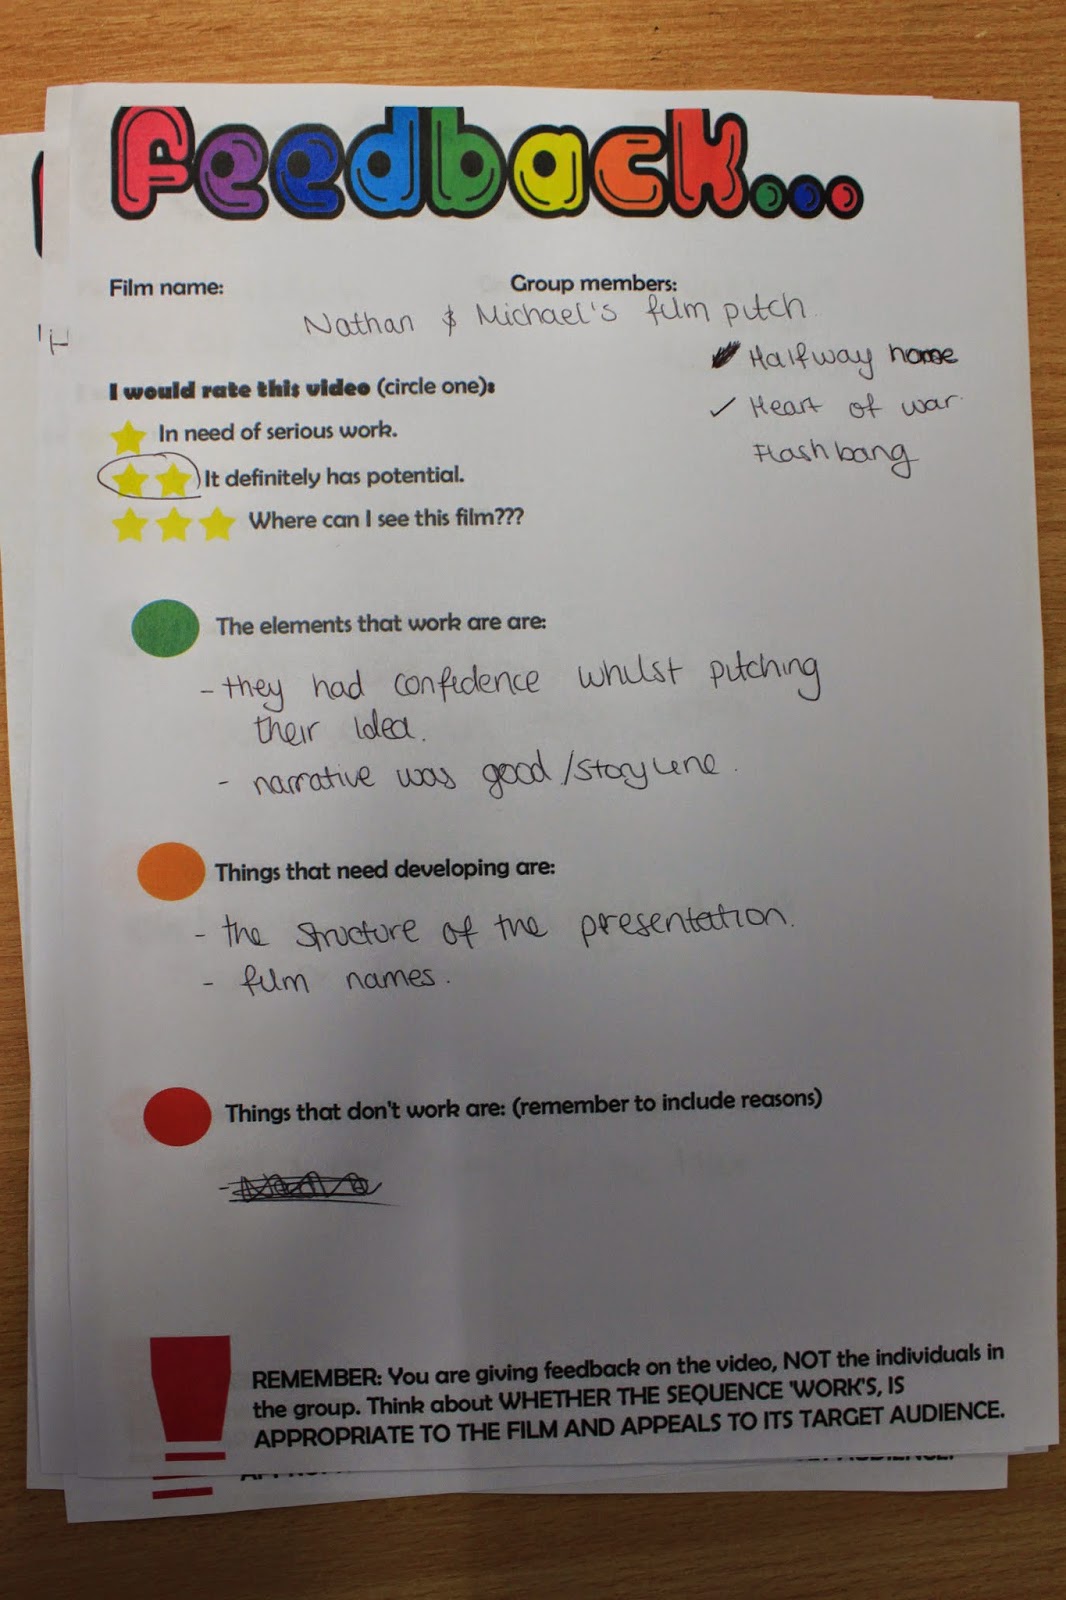 Feedback...
Film name:
Group members:
Nathan & Michael's film pitch.
Halfway home
✓ Heart of war.
Flashbang
I would rate this video (circle one):
In need of serious work.
It definitely has potential.
Where can I see this film???
The elements that work are are:
- they had confidence whilst pitching
their idea.
- narrative was good/storyline.
Things that need developing are:
- the structure of the presentation.
- film names.
Things that don't work are: (remember to include reasons)
REMEMBER: You are giving feedback on the video, NOT the individuals in
the group. Think about WHETHER THE SEQUENCE 'WORK'S, IS
APPROPRIATE TO THE FILM AND APPEALS TO ITS TARGET AUDIENCE.